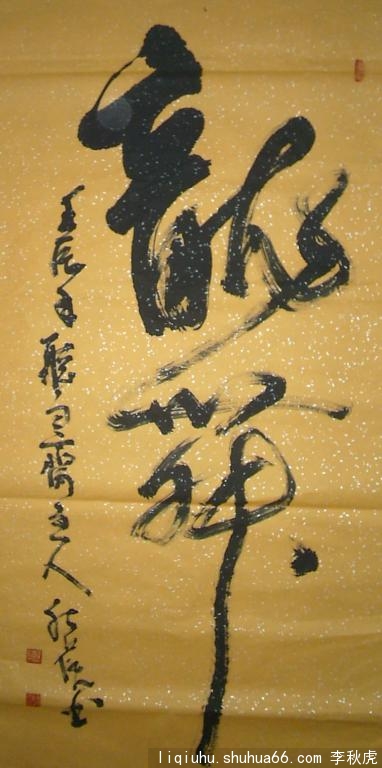 龍舞
壬辰年聽齋主人秋虎書
liqiuhu.shuhua66.com 李秋虎